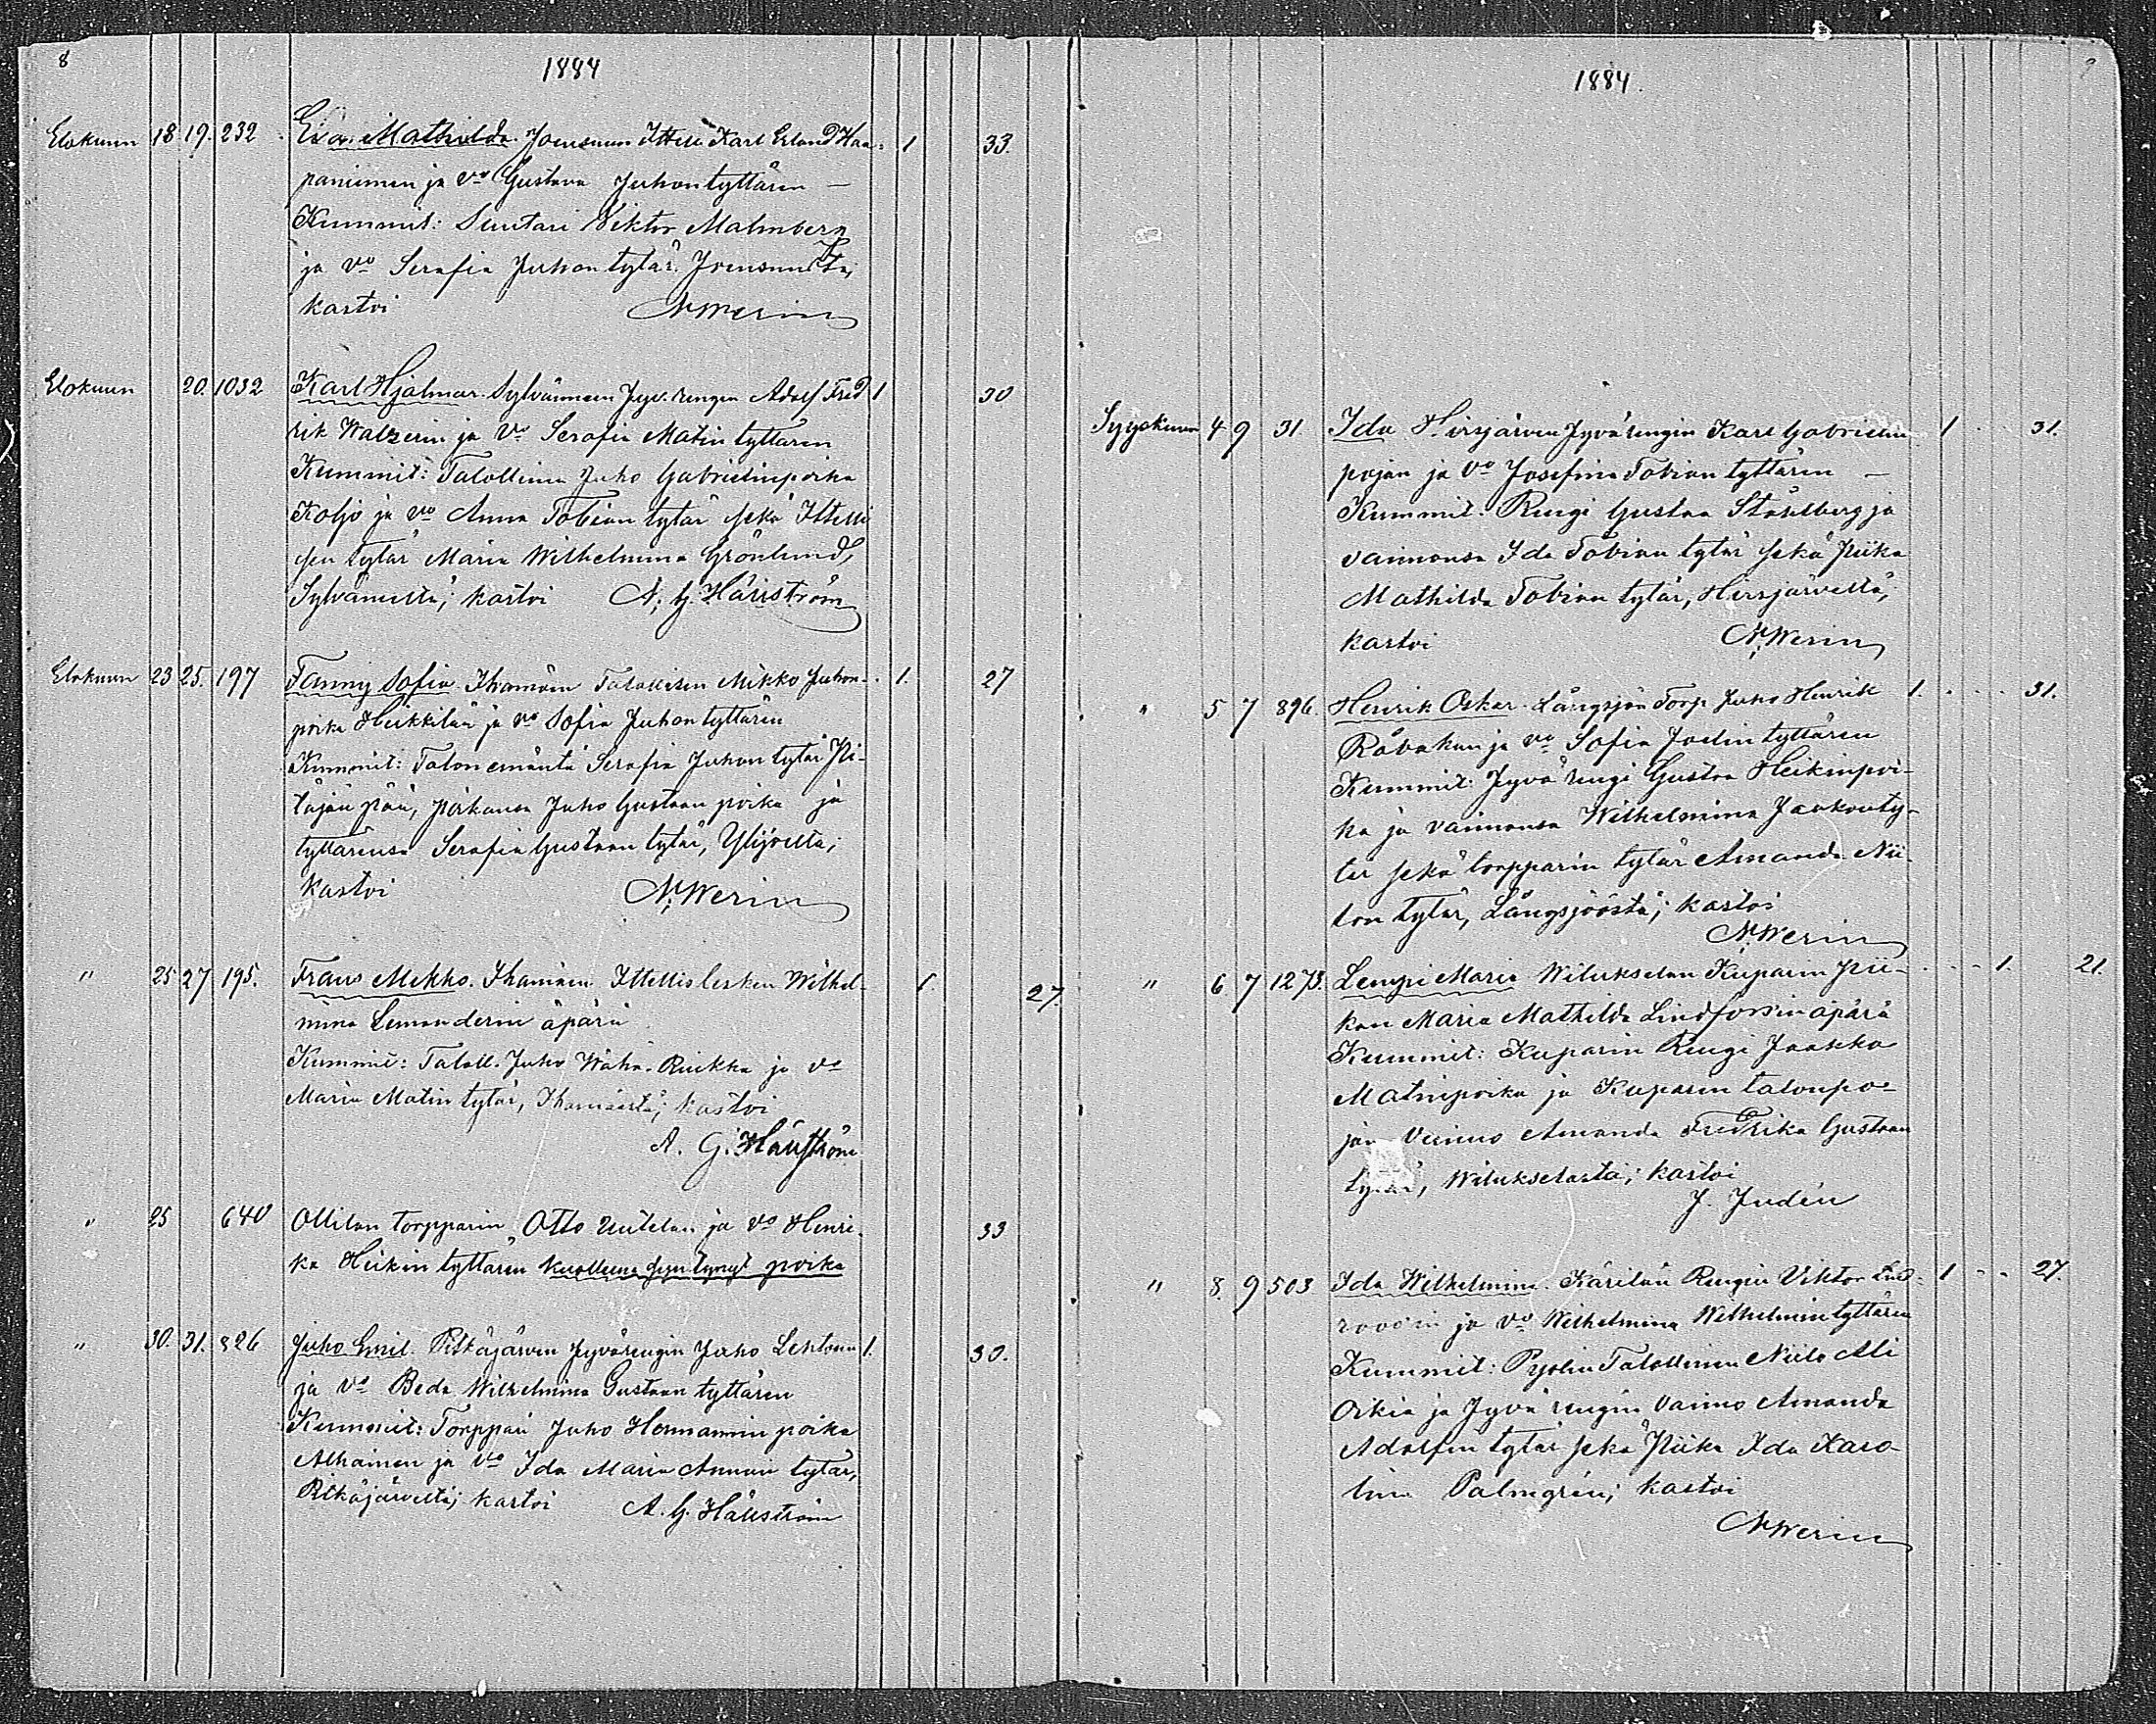 8
1884
Elokuun 18 19. 232 Eva Mathilda. Joensuun Ittell. Karl Erland Haa- 1 33.
paniemen ja vo Gustava Juhontyttären —
Kummit: Suutari Viktor Malmberg
ja vo Serafia Juhontytär. Joensuusta;
kastoi N. Werin
Elokuun 20. 1032 Karl Hjalmar. Sylvänneen Jyv. rengin Adolf Fred 1 30
rik Walzerin ja Vo Serafia Matintyttären
Kummit: Talollinen Juho Gabrielinpoika
Koljo ja vo Anna Tobiantytär sekä Ittelli
sen tytär Maria Wilhelmina Grönlund,
Sylvänneltä; kastoi A. G. Hällström
Elokuun 23 25. 197 Fanny Sofia. Ihamäen Talollisen Mikko Juhon- 1. 27
poika Heikkilän ja vo Sofia Juhontyttären
Kummit: Talon emäntä Serafia Juhontytär
pää, poikansa Juho Gustaanpoika ja
tyttärensä Serafia Gustaantytär, Ylijoelta;
kastoi N. Werin
" 25 27 195. Frans Mikko. Ihamäen Ittellislesken Wilhel- 1. 27.
mina Lemanderin äpärä
Kummit: Taloll. Juho Wähä-Ruikka ja vo
Maria Matintytär, Ihamäestä; kastoi
A. G. Hällström
" 25 640 Ollilan torpparin Otto Uutelan ja vo Henri- 33
ka Heikintyttären kuolleena syntynyt poika
" 30. 31. 826 Juho Emil. Pitkäjärven Jyvärengin Juho Lehtosen 1. 30.
ja vo Beda Wilhelmina Gustaantyttären
Kummit: Torppari Juho Hermanninpoika
Alhainen ja vo Ida Maria Annantytär,
Pitkäjärveltä; kastoi A. G. Hällström
9
1884.
Syyskuun 4 9 31 Ida Hirsjärven Jyvärengin Karl Gabrielin 1 31.
pojan ja vo Josefina Tobiantyttären —
Kummit. Rengi Gustaa Ståhlberg ja
vaimonsa Ida Tobiantytär sekä piika
Mathilda Tobiantytär, Hirsjärveltä;
kastoi N. Werin
" 5 7 896. Henrik Oskar. Långsjön Torp. Juho Henrik 1. 31.
Råvakan ja vo Sofia Joelintyttären
Kummit: Jyvärengi Gustaa Heikinpoi-
ka ja vaimonsa Wilhelmina Jaakonty-
tär sekä torpparin tytär Amanda Nii-
lontytär, Långsjööstä; kastoi
N. Werin
" 6. 7 1273. Lempi Maria Wilukselan Kuparin pii- 1. 21.
kan Maria Mathilda Lindforsin äpärä
Kummit: Kuparin Rengi Jaakko
Matinpoika ja Kuparin talonpo-
jan vaimo Amanda Fredrika Gustaan
tytär, Wilukselasta; kastoi
J. Judén
" 8. 9 503 Ida Wilhelmina. Kärilän Rengin Viktor Lind- 1 27.
roosin ja vo Wilhelmina Wilhelmintyttären
Kummit: Pyölin Talollinen Niilo Ali
Oikia ja Jyvärengin vaimo Amanda
Adolfintytär sekä Piika Ida Karo-
lina Palmgrén; kastoi
N. Werin